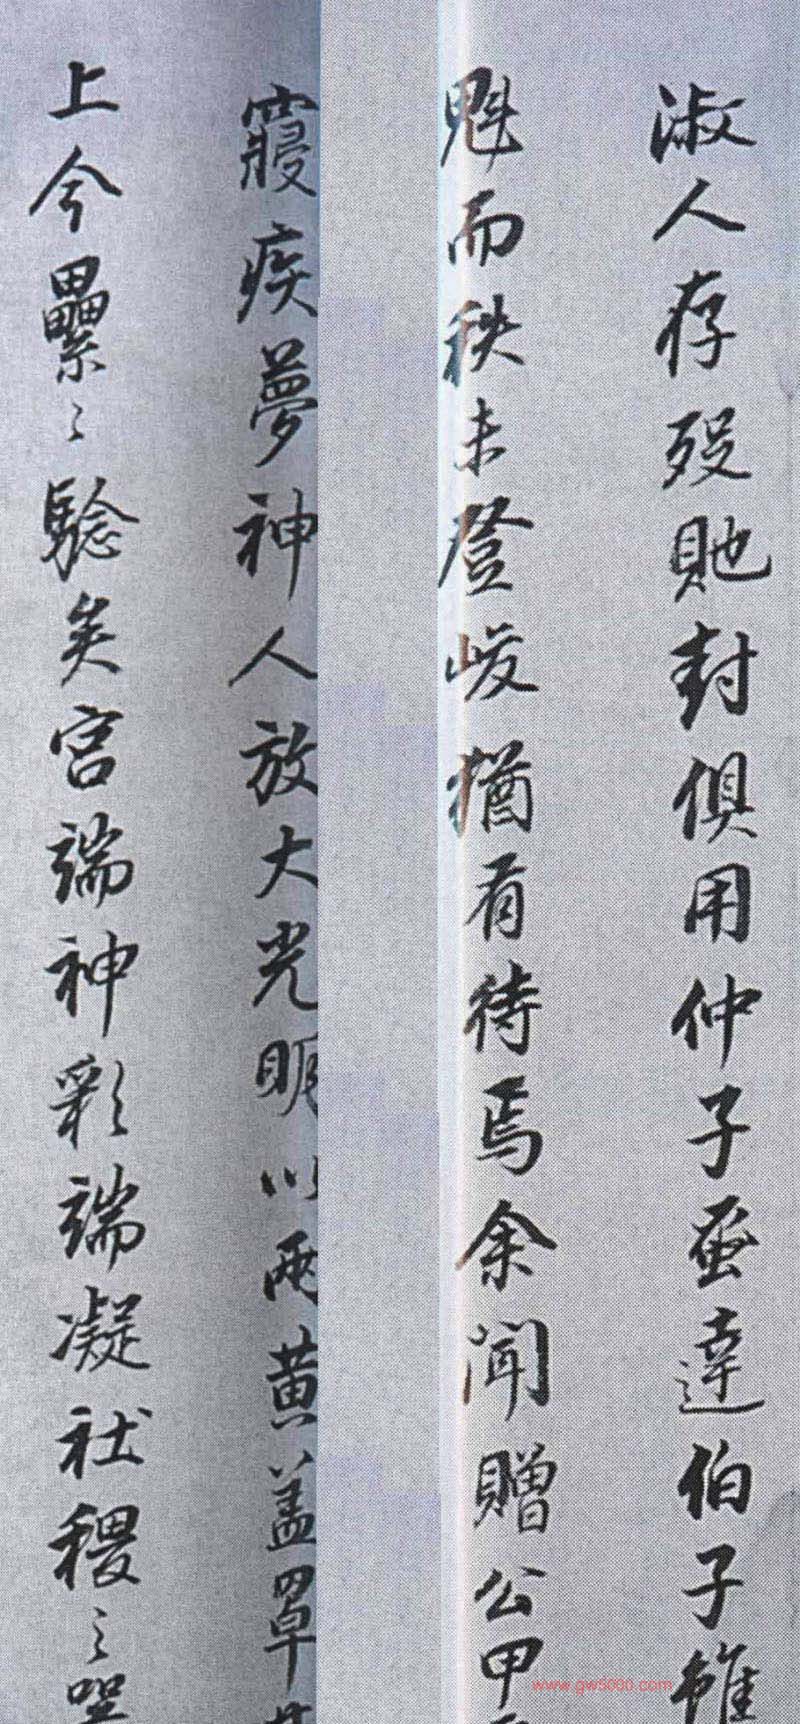 淑人存歿貤封俱用仲子蚤達伯子雖
魁而秩未登峻猶有待焉余聞贈公甲
寢疾夢神人放大光明以兩黄盖罩
上今纍〻驗矣宫端神彩端凝社稷之
www.gw5000.com